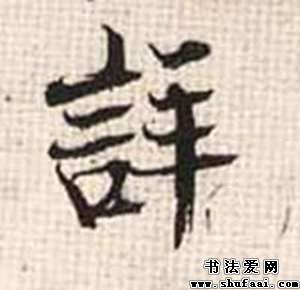 詳
书法爱网
www.shufaai.com